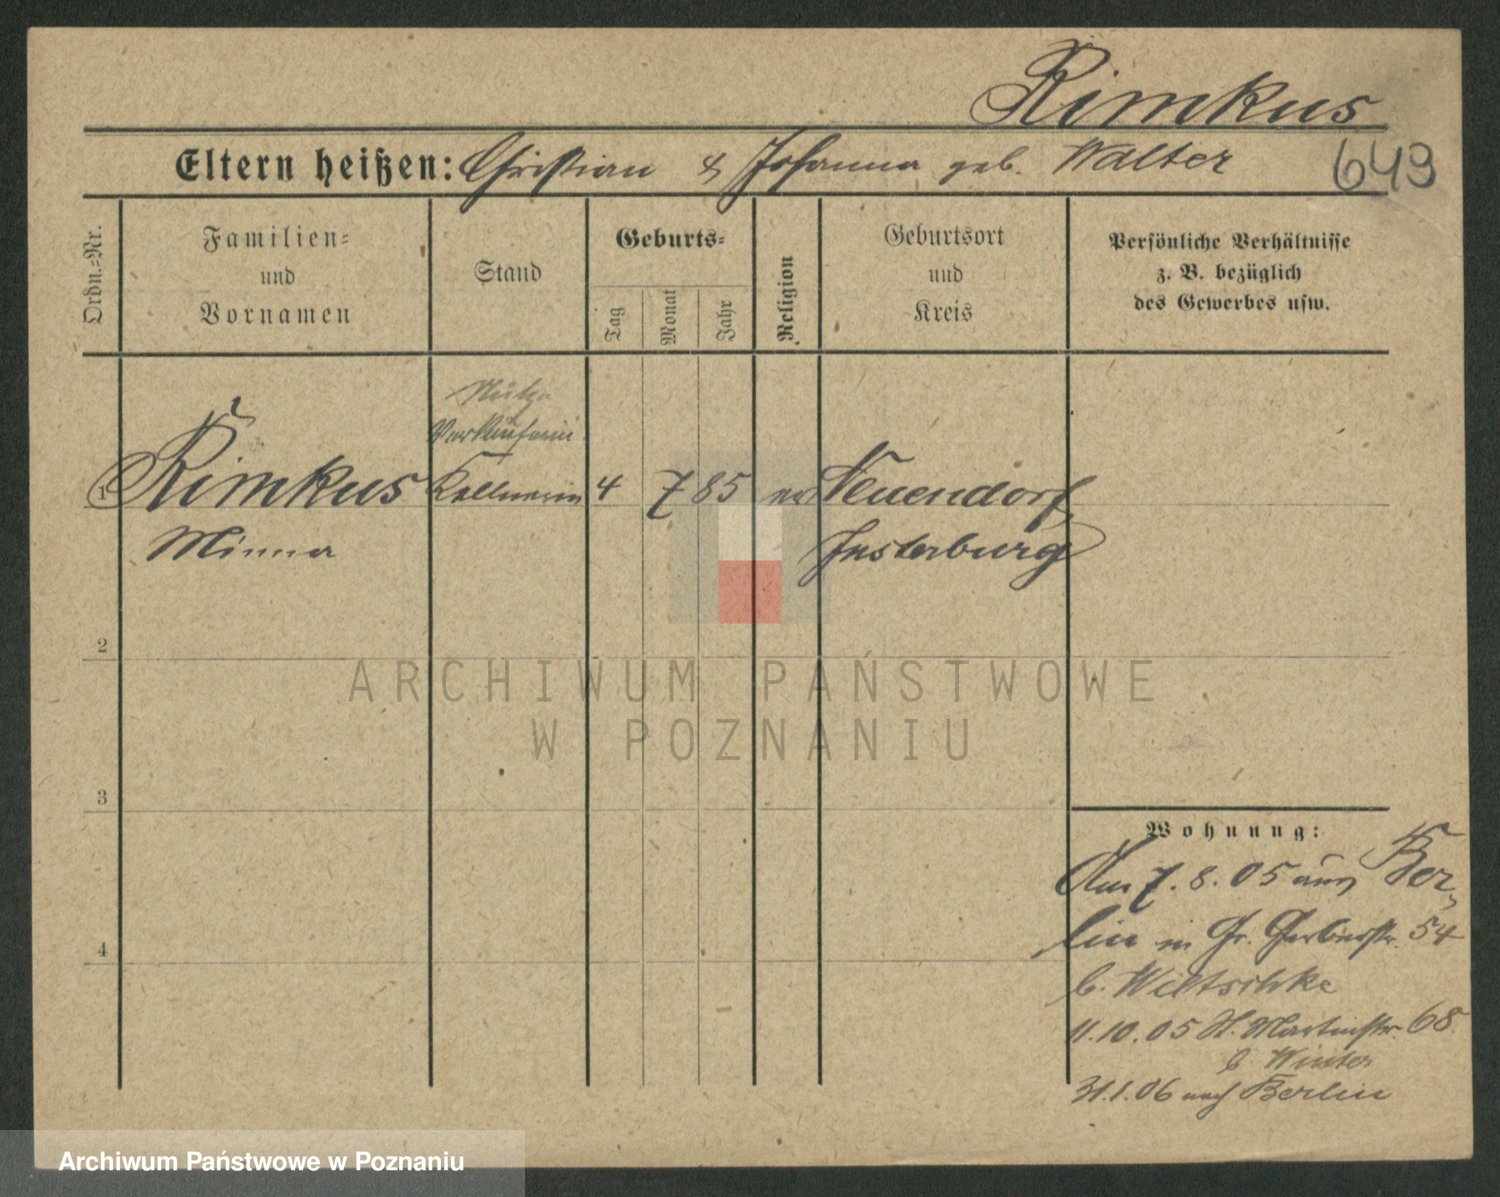 Rimkus
Eltern heißen: Christian & Johanna geb. Walter
649
Ordn.=Nr.
Familien=
und
Vornamen
Stand
Geburts=
Tag
Monat
Jahr
Religion
Geburtsort
und
Kreis
Persönliche Verhältnisse
z. B. bezüglich
des Gewerbes usw.
Verkäuferin
1 Rimkus Kellnerin 4 7 85 ev Neuendorf
Minna Insterburg
2
3
4
Wohnung:
Am 7. 8. 05 aus Ber-
lin in Gr. Gerberstr. 54
b. Wiltschke
11.10.05 St. Martinstr. 68
b. Winter
31.1.06 nach Berlin
ARCHIWUM PAŃSTWOWE
W POZNANIU
Archiwum Państwowe w Poznaniu